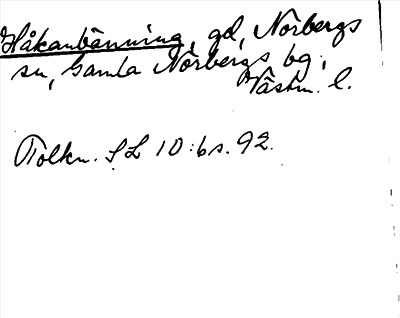 Håkanbänning, gd, Norbergs
sn, Gamla Norbergs bg,
Västm. l.
Tolkn. SL 10:6 s. 92.